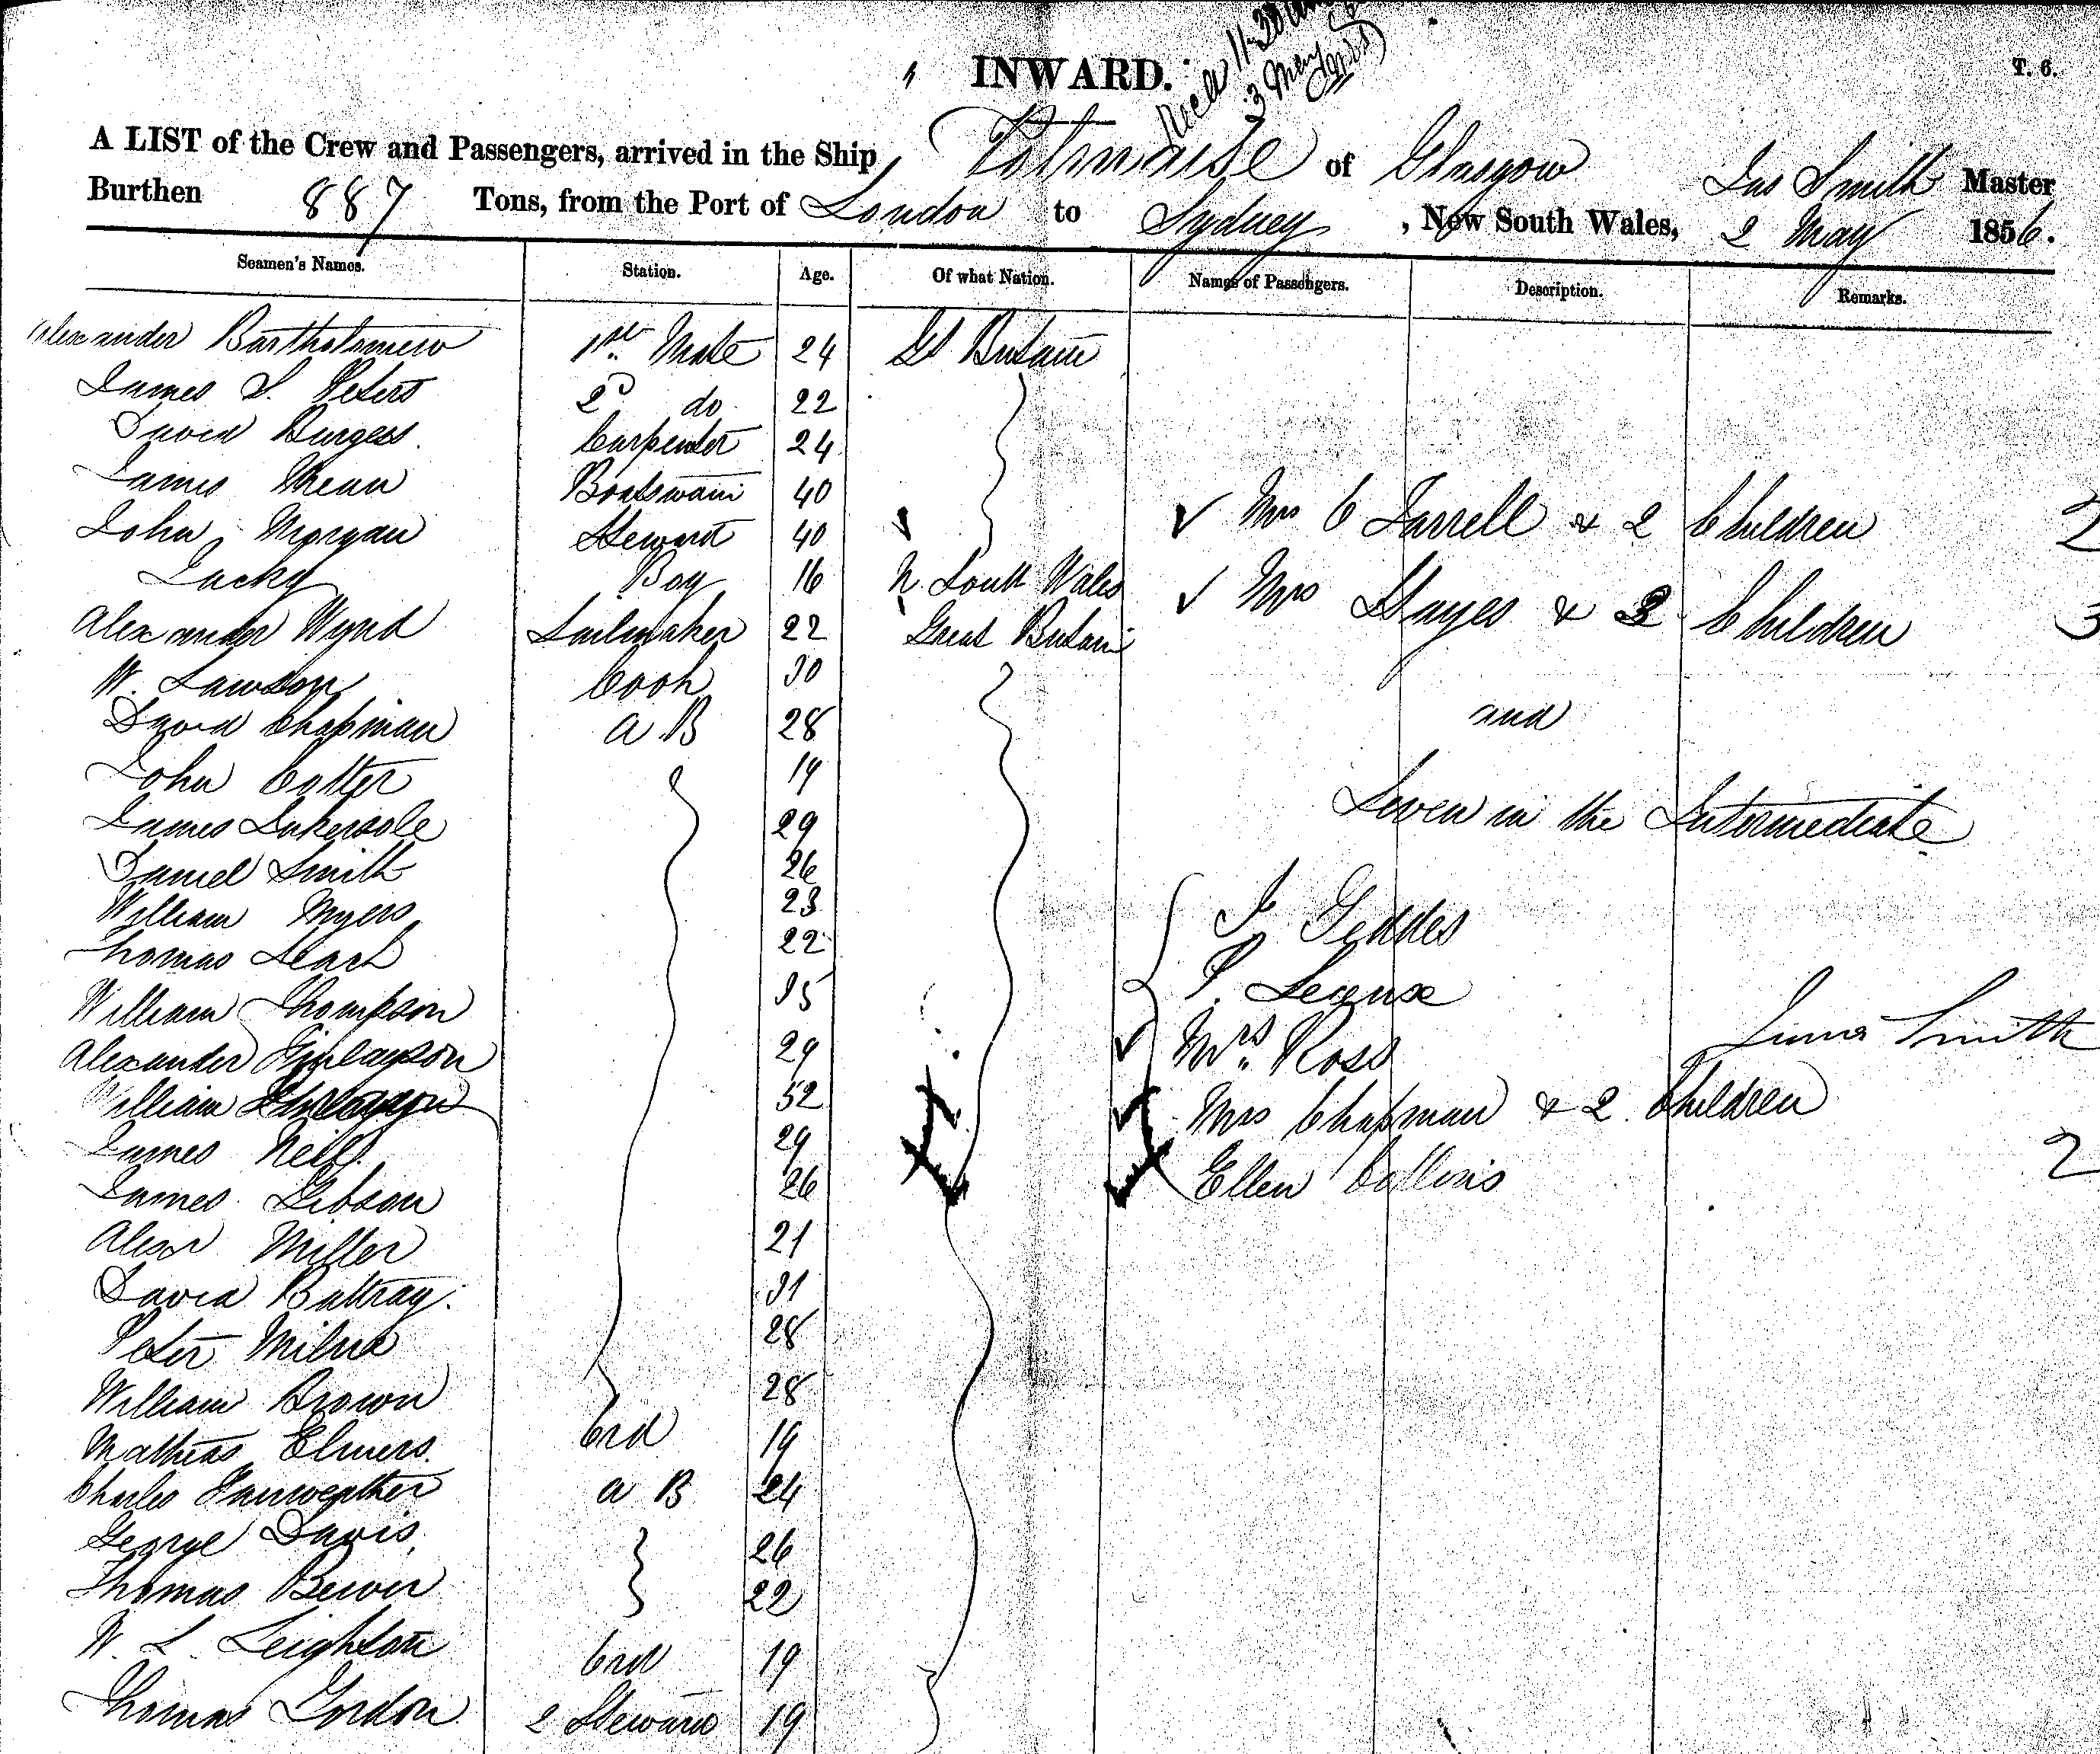 INWARD.
T. 6.
11.30 am
3 May
A LIST of the Crew and Passengers, arrived in the Ship Polmaise of Glasgow Jas Smith Master
Burthen 887 Tons, from the Port of London to Sydney, New South Wales, 2 May 1856.
Seamen's Names. Station. Age. Of what Nation. Names of Passengers. Description. Remarks.
Alexander Bartholomew 1st Mate 24 Gt Britain
James S. Peters 2d do 22
David Burgess Carpenter 24
James Boatswain 40
John Morgan Steward 40 Mrs C Farrell & 2 Children 2
Jacky Boy 16 N. South Wales
Alexander Wynd Sailmaker 22 Great Britain Mrs Hayes & 3 Children 3
W. Lawson Cook 30
David Chapman A B 28 and
John Cotter 19
James 29 Seven in the Intermediate
Daniel Smith 26
William Myers 23 Geddes
Thomas Leach 22
William Thompson 35 P.
Alexander Finlayson 29 Mrs. Ross James Smith
William 52 Mrs Chapman & 2 Children
James Neill 29 2
James Gibson 26 Ellen Collins
Alexr Miller 21
David Battray 31
Peter Milne 28
William Brown 28
Mathias Elmers Ord 19
Charles Fairweather A B 24
George Davis 26
Thomas 22
W. L. Leighton Ord 19
Thomas Gordon 2 Steward 19